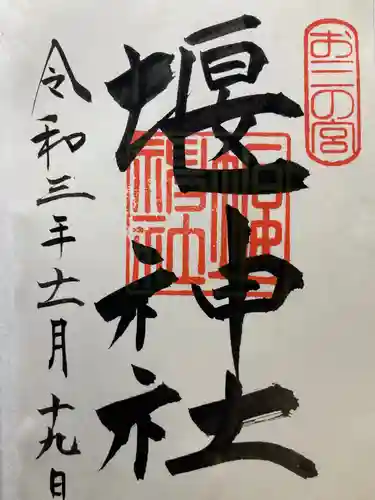 お三の宮
堰神社
令和三年十一月十九日